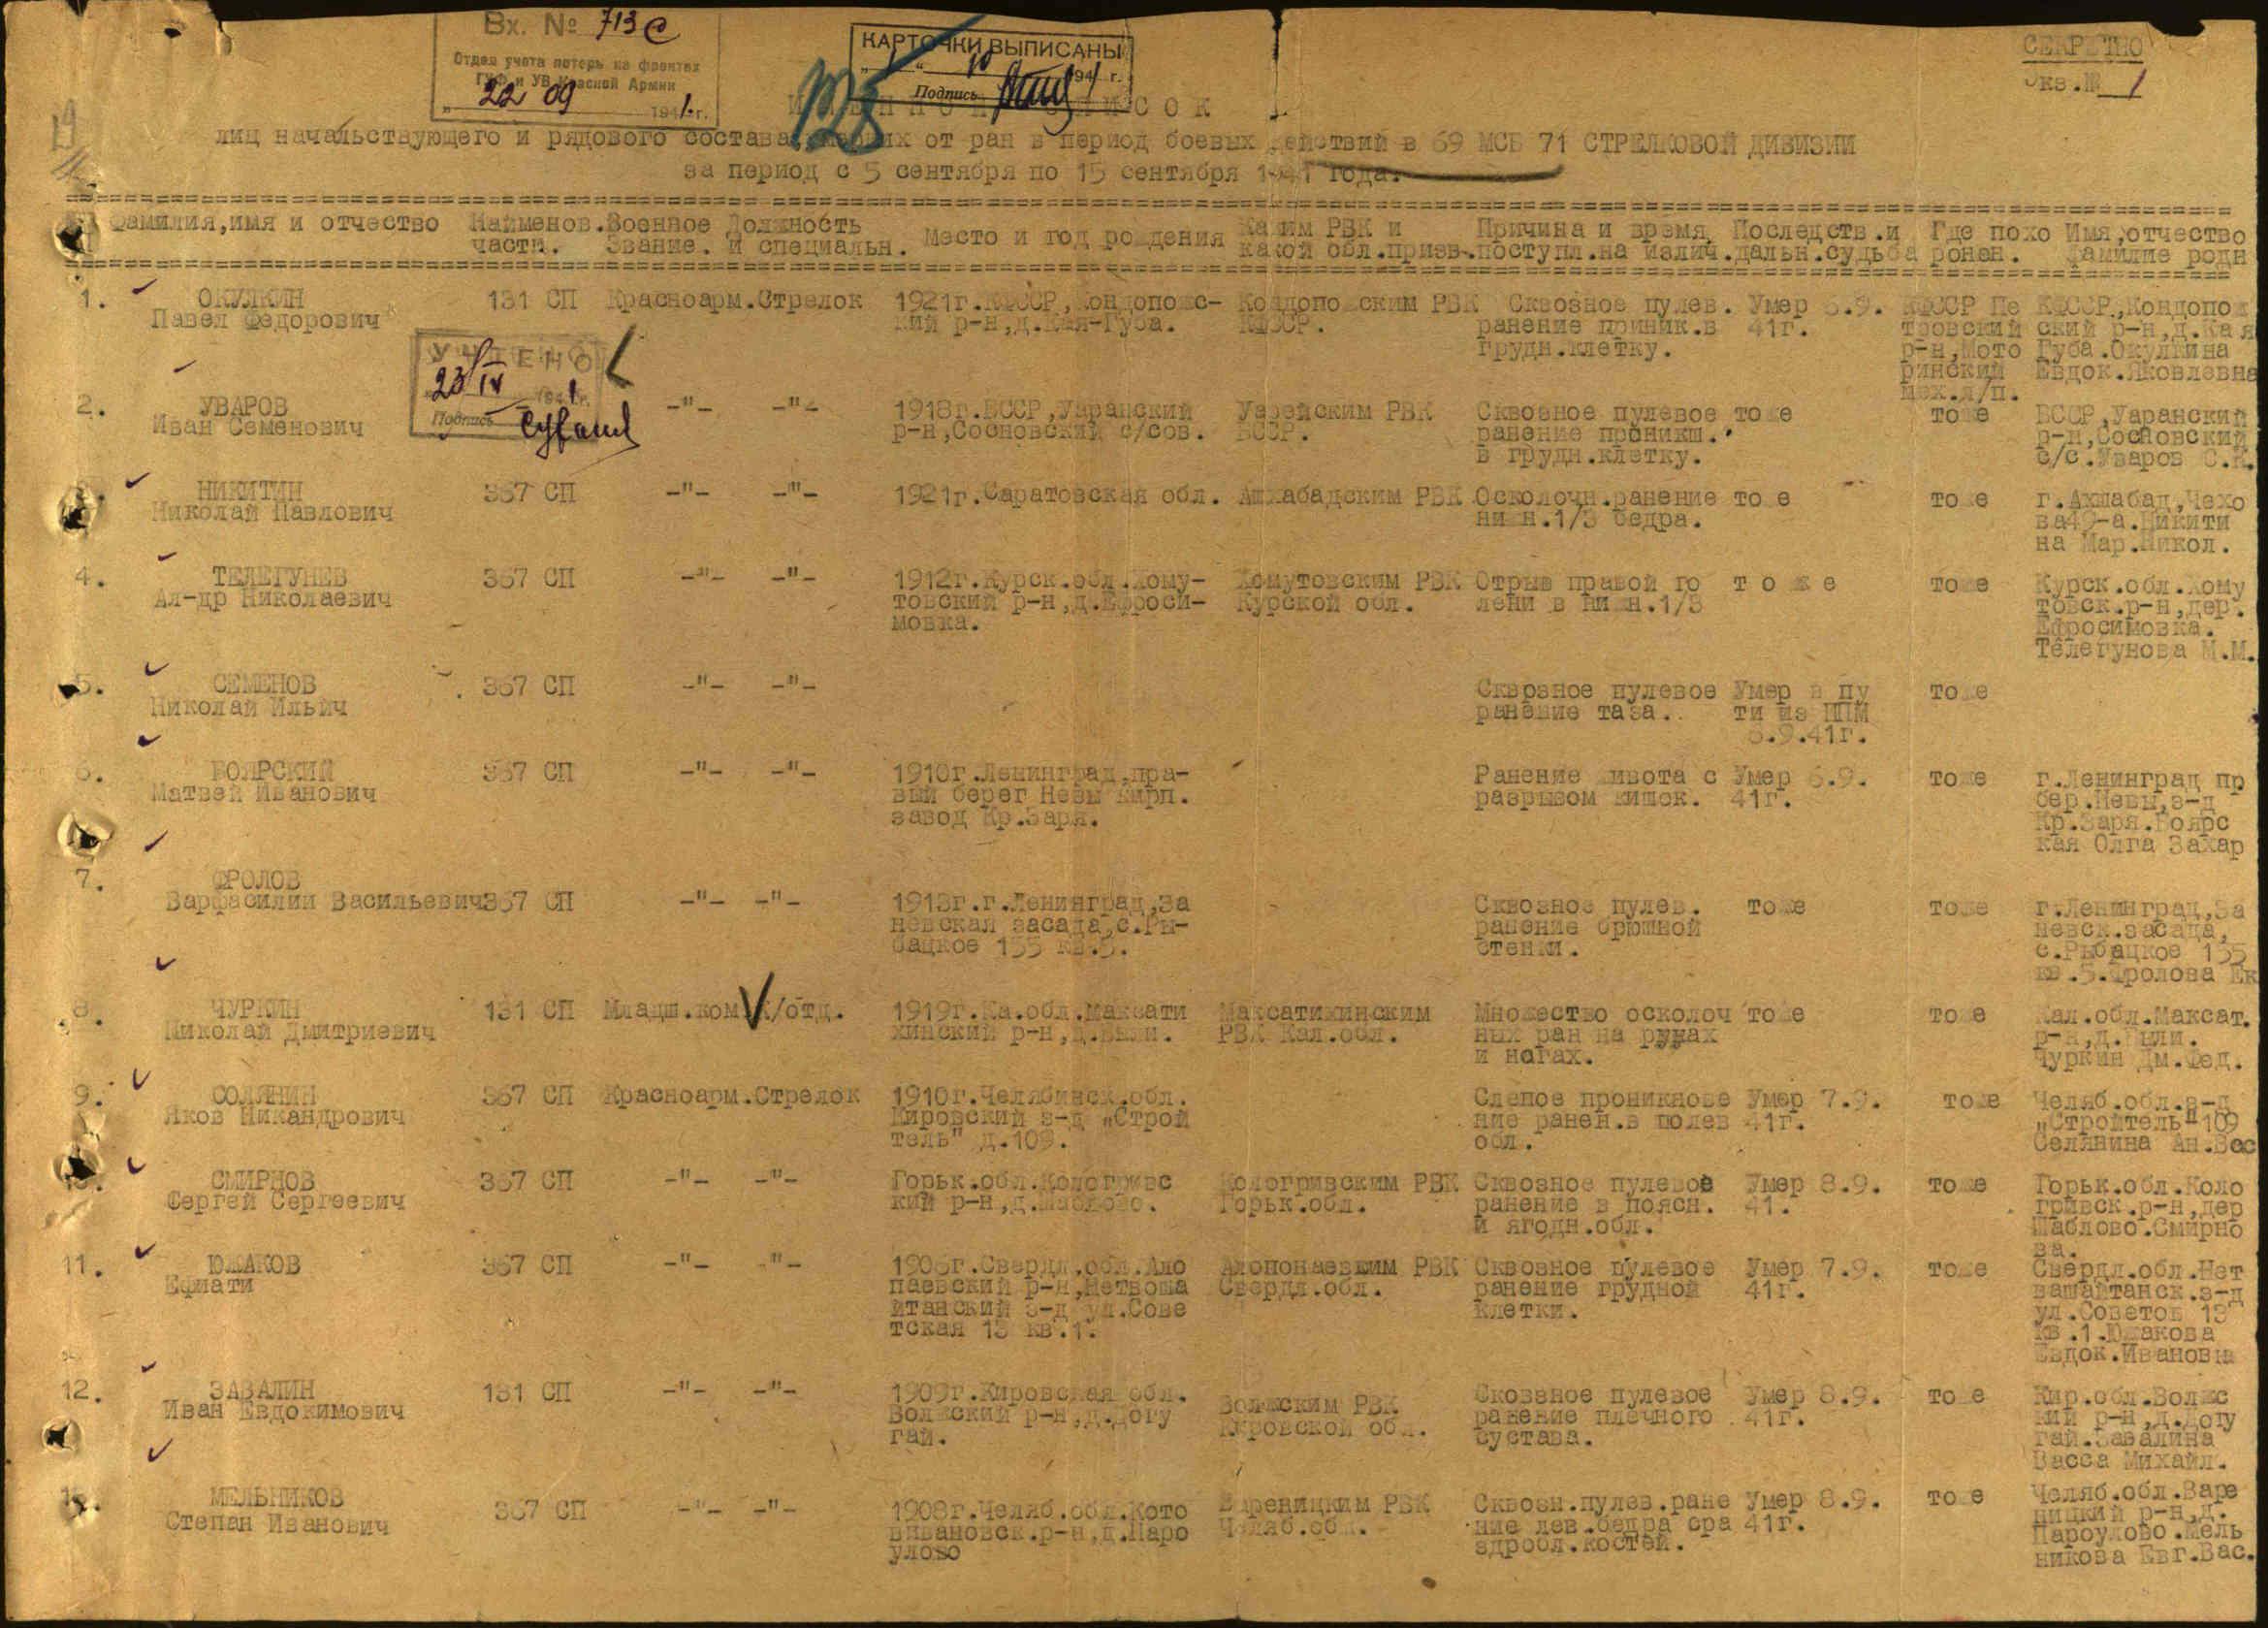 Вх. № 713с
Отдел учета потерь на фронтах
ГУФ и УВ Красной Армии
"22" 09 1941 г.
КАРТОЧКИ ВЫПИСАНЫ
10 1941 г.
Подпись
СЕКРЕТНО
Экз.№ 1
ИМЕННОЙ СПИСОК
лиц начальствующего и рядового состава умерших от ран в период боевых действий в 69 МСБ 71 СТРЕЛКОВОЙ ДИВИЗИИ
за период с 5 сентября по 15 сентября 1941 года.
Фамилия,имя и отчество Наименов. Военное Должность Место и год рождения Каким РВК и Причина и время Последств.и Где похо Имя,отчество
части. Звание. и специальн. какой обл.призв. поступл.на излич. дальн.судьба ронен. фамилие родн
1. ОКУЛКИН 131 СП Красноарм. Стрелок 1921г.КФССР,Кондопожс- Кондопожским РВК Сквозное пулев. Умер 6.9. КФССР Пе КФССР,Кондопож
Павел Федорович кий р-н,д.Кяя-Губа. КФССР. ранение приник.в 41г. тровский ский р-н,д.Кая
грудн.клетку. р-н,Мото Губа.Окулкина
ринский Евдок.Яковлевна
мех.л/п.
УЧТЕНО
23/IV 1941г.
Подпись
2. УВАРОВ -"- -"- 1918г.БССР,Уваранский РВК Сквозное пулевое тоже тоже БССР,Уаранский
Иван Семенович р-н,Сосновский с/сов. БССР. ранение проникш. р-н,Сосновский
в грудн.клетку. с/с.Уваров С.К.
3. НИКИТИН 367 СП -"- -"- 1921г.Саратовская обл. Ашхабадским РВК Осколочн.ранение тоже тоже г.Ахшабад,Чехо
Николай Павлович нижн.1/3 бедра. ва49-а.Никити
на Мар.Никол.
4. ТЕЛЕГУНЕВ 367 СП -"- -"- 1912г.Курск.обл.Хому- Хомутовским РВК Отрыв правой го т о ж е тоже Курск.обл.Хому
Ал-др Николаевич товский р-н,д.Ефроси- Курской обл. лени в нижн.1/3 товск.р-н,дер.
мовка. Ефросимовка.
Телегунова М.М.
5. СЕМЕНОВ 367 СП -"- -"- Сквозное пулевое Умер в пу тоже
Николай Ильич ранение таза. ти из ППМ
6.9.41г.
6. БОЯРСКИЙ 367 СП -"- -"- 1910г.Ленинград,пра- Ранение живота с Умер 6.9. тоже г.Ленинград пр
Матвей Иванович вый берег Невы кирп. разрывом кишок. 41г. бер.Невы,з-д
завод Кр.Заря. Кр.Заря.Боярс
кая Олга Захар
7. ФРОЛОВ
Варфасилий Васильевич 367 СП -"- -"- 1913г.г.Ленинград,За Сквозное пулев. тоже тоже г.Ленинград,За
невская засада,с.Ры- ранение брюшной невск.засада,
бацкое 155 кв.5. стенки. с.Рыбацкое 155
кв.5.Фролова Ек
8. ЧУРКИН 131 СП Младш.ком К/отд. 1919г.Ка.обл.Максати Максатихинским Множество осколоч тоже тоже Кал.обл.Максат.
Николай Дмитриевич хинский р-н, РВК Кал.обл. ных ран на руках р-н,
и ногах. Чуркин Дм.Фед.
9. СОЛЯНИН 367 СП Красноарм. Стрелок 1910г.Челябинск.обл. Слепое проникнове Умер 7.9. тоже Челяб.обл.з-д
Яков Никандрович Кировский з-д „Строй ние ранен.в полев 41г. „Строитель" 109
тель" д.109. обл. Селянина Ан.Вас
10. СМИРНОВ 367 СП -"- -"- Горьк.обл.Кологривс Кологривским РВК Сквозное пулевое Умер 8.9. тоже Горьк.обл.Коло
Сергей Сергеевич кий р-н,д.Шаблово. Горьк.обл. ранение в поясн. 41. гривск.р-н,дер
и ягодн.обл. Шаблово.Смирно
ва.
11. ЮЖАКОВ 367 СП -"- -"- 1905г.Свердл.обл.Ало Алопонаевшим РВК Сквозное пулевое Умер 7.9. тоже Свердл.обл.Нет
Ефиати паевский р-н,Нетвоша Свердл.обл. ранение грудной 41г. вашайтанск.з-д
йтанский з-д ул.Сове клетки. ул.Советов 13
тская 13 кв.1. кв.1.Южакова
Евдок.Ивановн
12. ЗАВАЛИН 131 СП -"- -"- 1909г.Кировская обл. Волжским РВК Сковзное пулевое Умер 8.9. тоже Кир.обл.Волжс
Иван Евдокимович Волжский р-н,д.Догу Кировской обл. ранение плечного 41г. кий р-н,д.Догу
гай. сустава. гай.Завалина
Васса Михайл.
13. МЕЛЬНИКОВ 367 СП -"- -"- 1908г.Челяб.обл.Кото Вареницким РВК Сквозн.пулев.ране Умер 8.9. тоже Челяб.обл.Варе
Степан Иванович вивановск.р-н,д.Паро Челяб.обл. ние лев.бедра сра 41г. ницкий р-н,д.
улово здробл.костей. Пароулово.Мель
никова Евг.Вас.